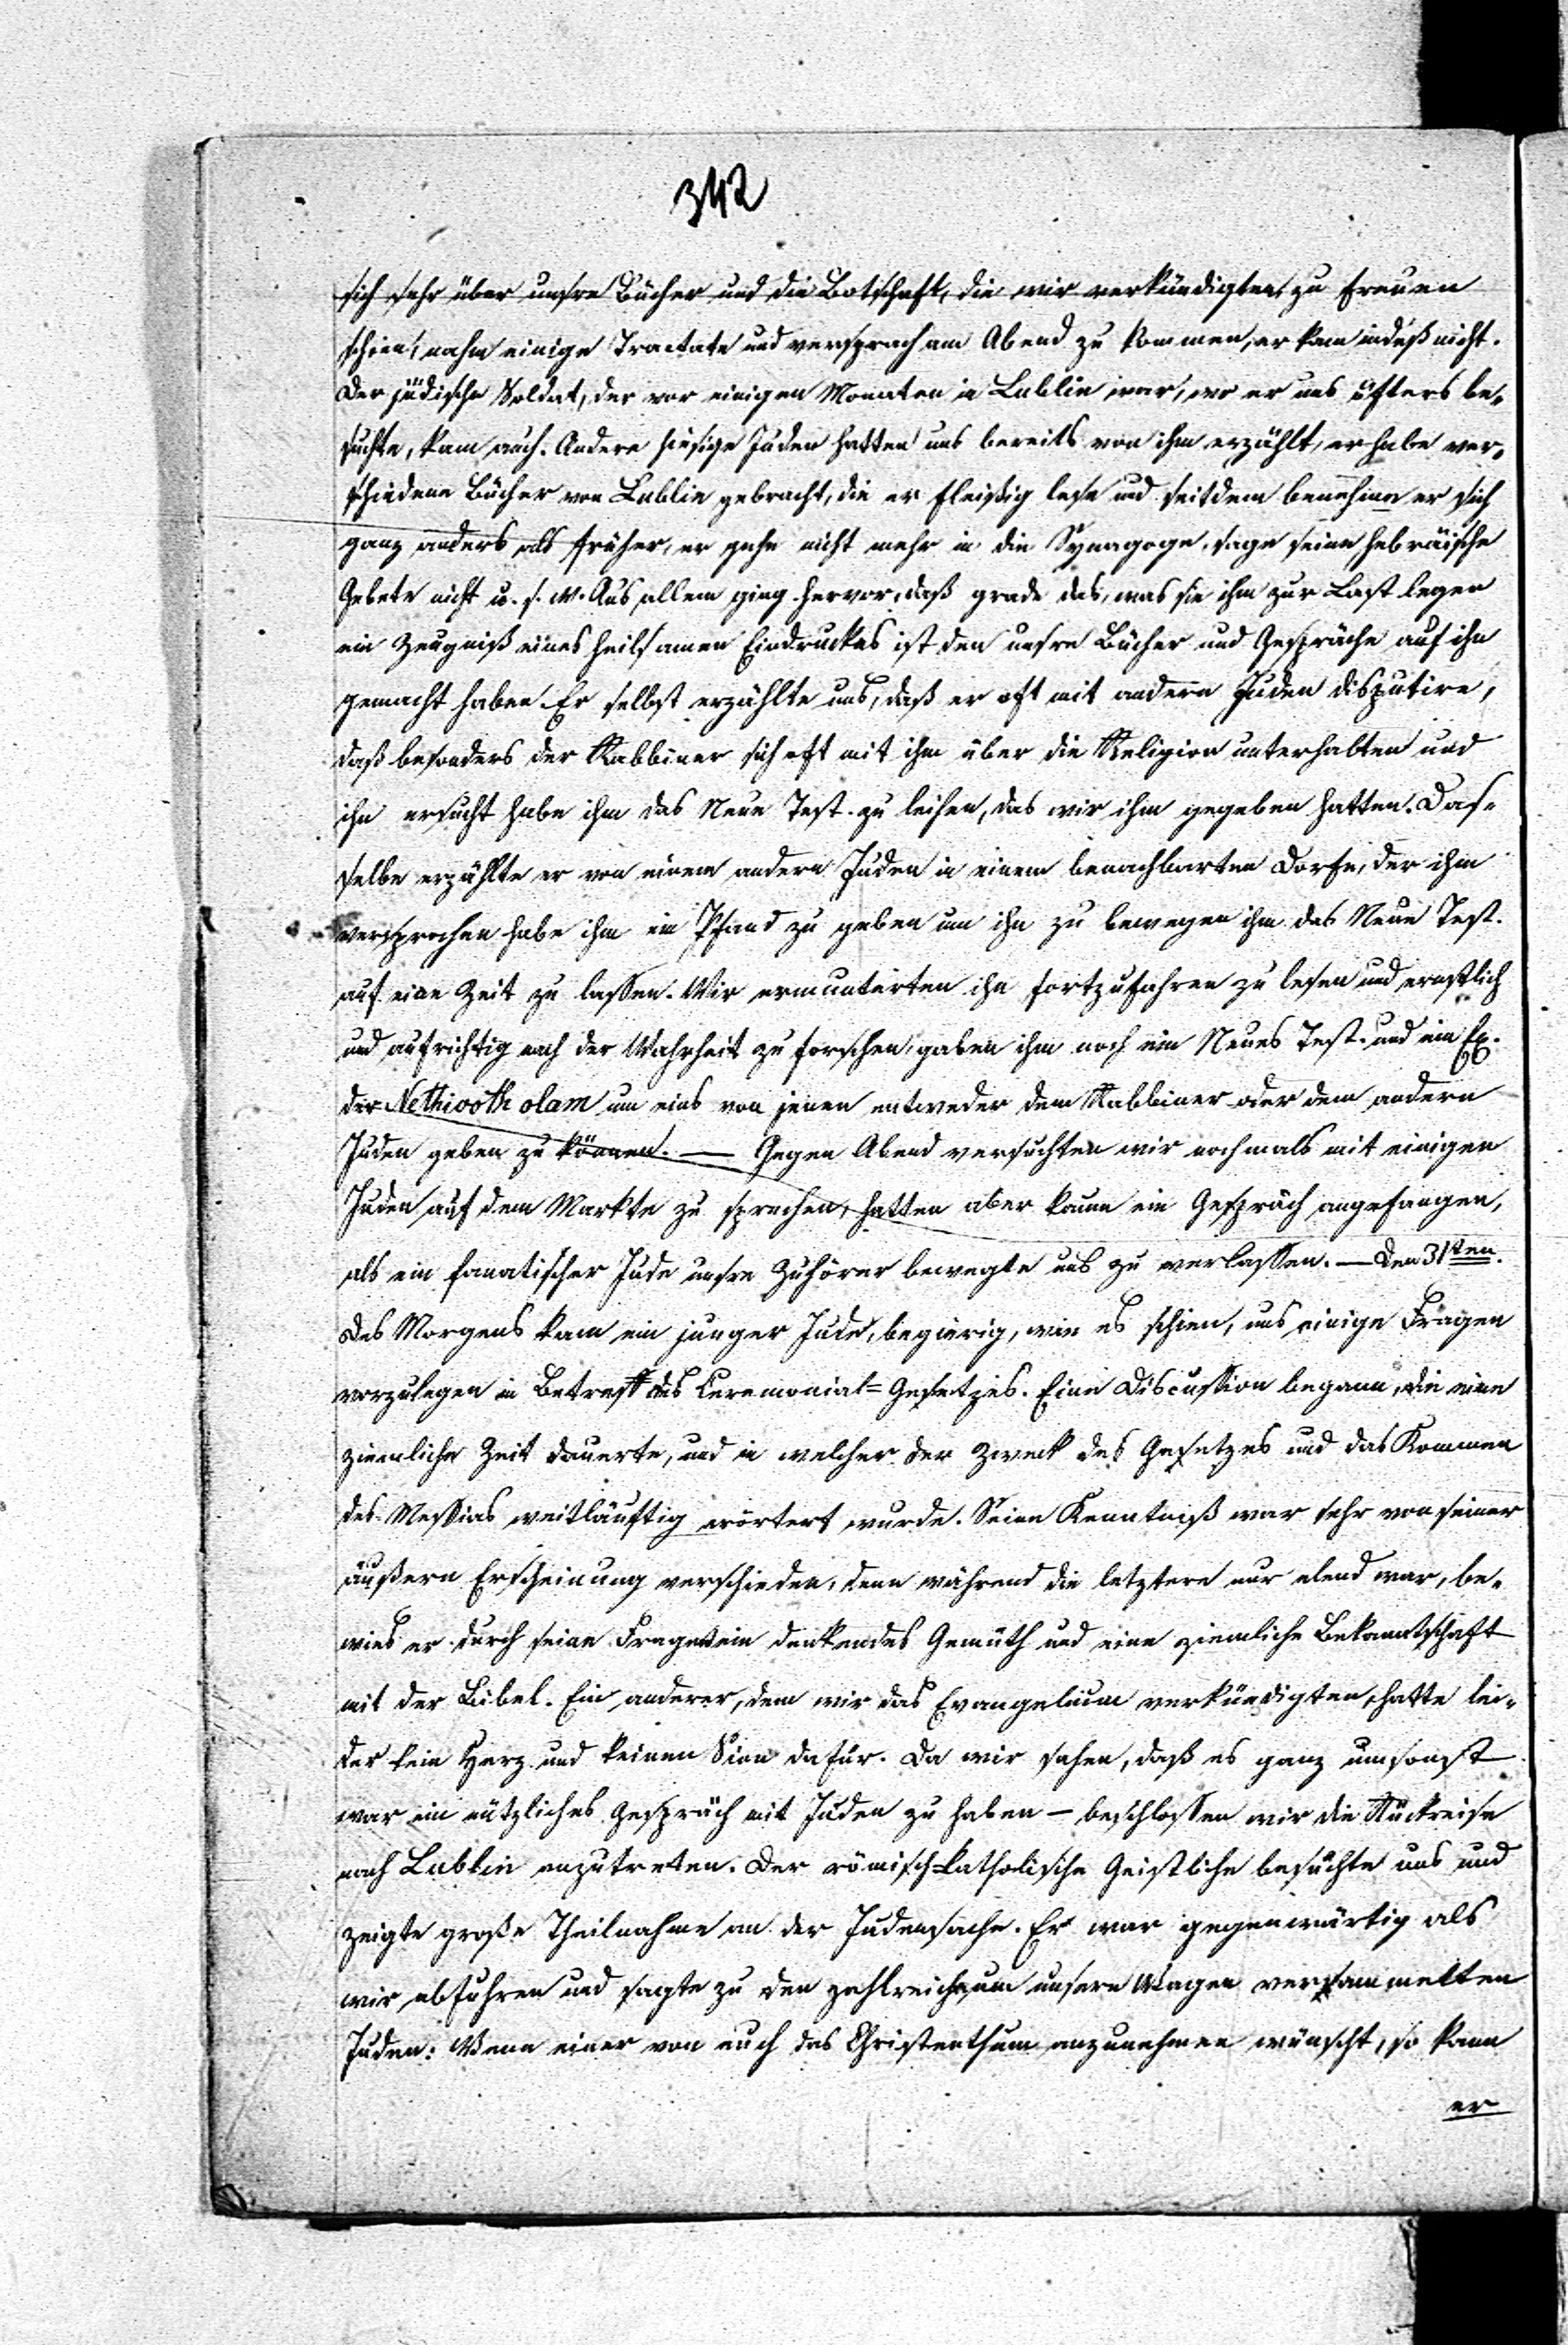 342
sich sehr über unsre Bücher und die Botschaft, die wir verkündigten, zu freuen
schien, nahm einige Tractate und versprach am Abend zu kommen, er kam indeß nicht.
Der jüdische Soldat, der vor einigen Monaten in Lublin war, wo er uns öfters be-
suchte, kam auch. Andere hiesige Juden hatten uns bereits von ihm erzählt, er habe ver-
schiedene Bücher von Lublin gebracht, die er fleißig lese und seitdem benehme er sich
ganz anders als früher, er gehe nicht mehr in die Synagoge, sage seine hebräische
Gebete nicht u. s. w. Aus allem ging hervor, daß grade das, was sie ihm zur Last legen
ein Zeugniß eines heilsamen Eindruckes ist den unsre Bücher und Gespräche auf ihn
gemacht haben. Er selbst erzählte uns, daß er oft mit andern Juden disputire,
daß besonders der Rabbiner sich oft mit ihm über die Religion unterhalten und
ihn ersucht habe ihm das Neue Test. zu leihen, das wir ihm gegeben hatten. Das-
selbe erzählte er von einem andern Juden in einem benachbarten Dorfe, der ihm
versprochen habe ihm ein Pfand zu geben um ihn zu bewegen ihm das Neue Test.
auf eine Zeit zu lassen. Wir ermunterten ihn fortzufahren zu lesen und ernstlich
und aufrichtig nach der Wahrheit zu forschen, gaben ihm noch ein Neues Test. und ein Ex.
der Nethivoth olam um eins von jenen entweder dem Rabbiner oder dem andern
Juden geben zu können. — Gegen Abend versuchten wir nochmals mit einigen
Juden auf dem Markte zu sprechen, hatten aber kaum ein Gespräch angefangen,
als ein fanatischer Jude unsre Zuhörer bewegte uns zu verlassen. — Den 31ten.
Des Morgens kam ein junger Jude, begierig, wie es schien, uns einige Fragen
vorzulegen in Betreff des Ceremonial-Gesetzes. Eine Discussion begann, die eine
ziemliche Zeit dauerte, und in welcher der Zweck des Gesetzes und das Kommen
des Messias weitläuftig erörtert wurde. Seine Kenntniß war sehr von seiner
äußern Erscheinung verschieden, denn während die letztere nur elend war, be-
wies er durch seine Fragen ein denkendes Gemüth und eine ziemliche Bekanntschaft
mit der Bibel. Ein anderer, dem wir das Evangelium verkündigten, hatte lei-
der kein Herz und keinen Sinn dafür. Da wir sahen, daß es ganz umsonst
war ein nützliches Gespräch mit Juden zu haben — beschlossen wir die Rückreise
nach Lublin anzutreten. Der römisch-katholische Geistliche besuchte uns und
zeigte große Theilnahme an der Judensache. Er war gegenwärtig als
wir abfuhren und sagte zu den zahlreich um unsern Wagen versammelten
Juden: Wenn einer von euch das Christenthum anzunehmen wünscht, so kann
er